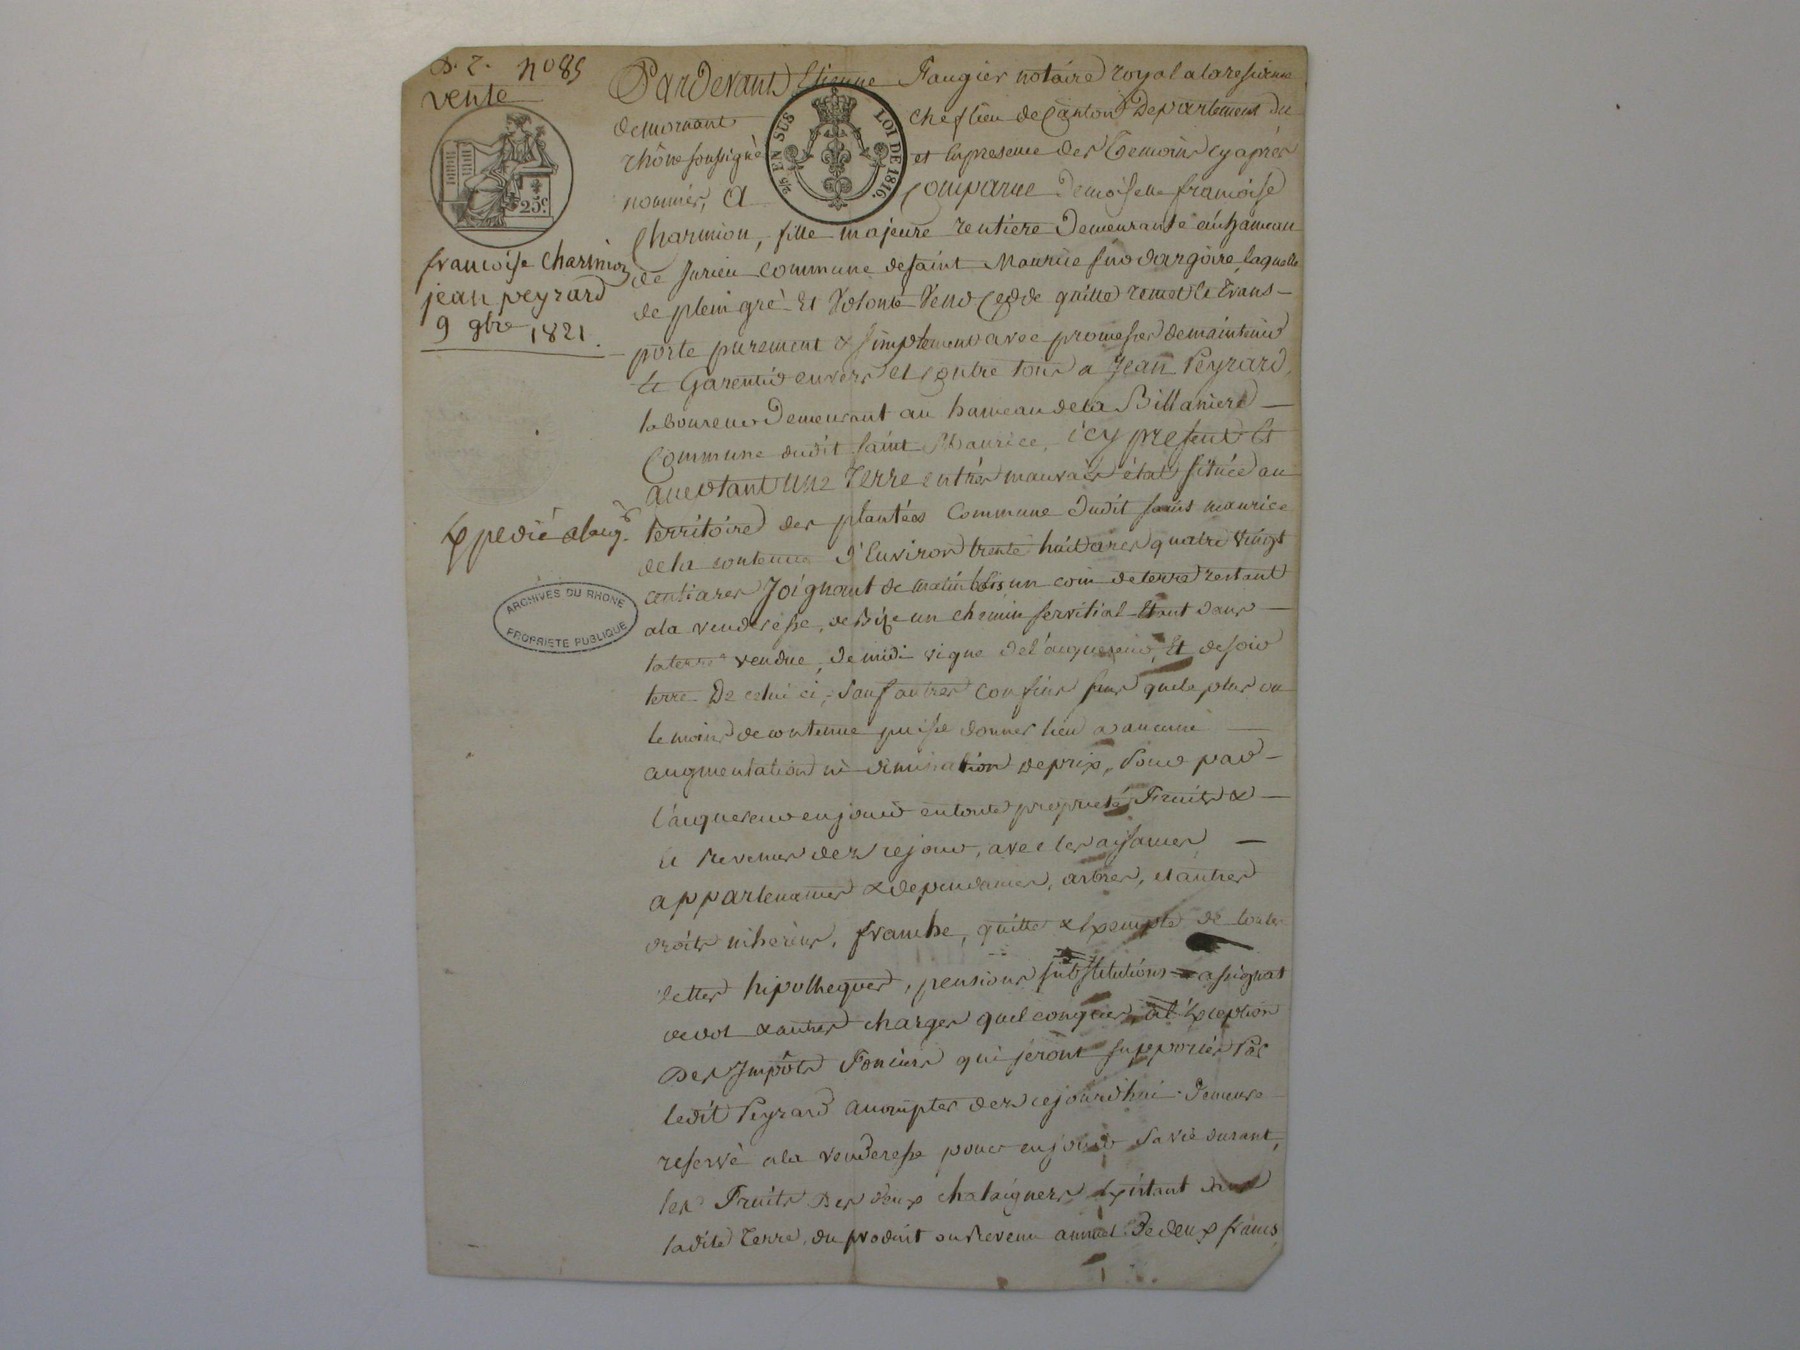 D. Z. n° 85
vente
25c.
françoise Charmion
jean peyrard
9 9bre 1821.
Expedié a l'acq.r
ARCHIVES DU RHONE
PROPRIETE PUBLIQUE
2/5 EN SUS LOI DE 1816.
Pardevant Etienne Faugier notaire royal a la residence
de mornant chef lieu de Canton Departement du
rhône soussigné et en presence des temoins cy après
nommés, A Comparue Demoiselle françoise
Charmion, fille majeure rentiere Demeurante au hameau
de Jurieu commune de saint Maurice sur dargoire, laquelle
de plein gré Et Volonté Vend Cedde quitte remet et trans-
porte purement & simplement avec promesse de maintenir
et Garentir envers et contre tous a Jean Peyrard,
laboureur Demeurant au hameau de la Billaniere
Commune dudit saint Maurice, icy present et
acceptant une Terre en très mauvais état située au
territoire des plantées Commune dudit saint maurice
de la contenue d'Environ trente huit ares quatre vingt
centiares Joignant de matin bois un coin de terre restant
a la venderesse, de Bize un chemin servitial Etant dans
la terre vendue, de midi vigne de l'acquereur, Et de soir
terre De celui ci, sauf autres confins sans que le plus ou
le moins de contenue puisse donner lieu a aucune
augmentation ni diminution de prix, Pour par
l'acquereur en jouir en toute propriété Fruits &
et Revenus dez ce jour, avec les aisances
appartenances & dependances, arbres, et autres
droits inherens, franche, quitte & Exempte de toutes
dettes hipotheques, pensions substitutions assignat
de dot & autres charges quelconques, a l'Exception
Des Impôts Fonciers qui seront supportés Par
ledit Peyrard a compter dez ce jourd'hui. Demeure
reservé a la venderesse pour en jouir sa vie durant,
les Fruits Des deux chataigners Existant dans
ladite Terre, du produit ou Revenu annuel De deux francs,